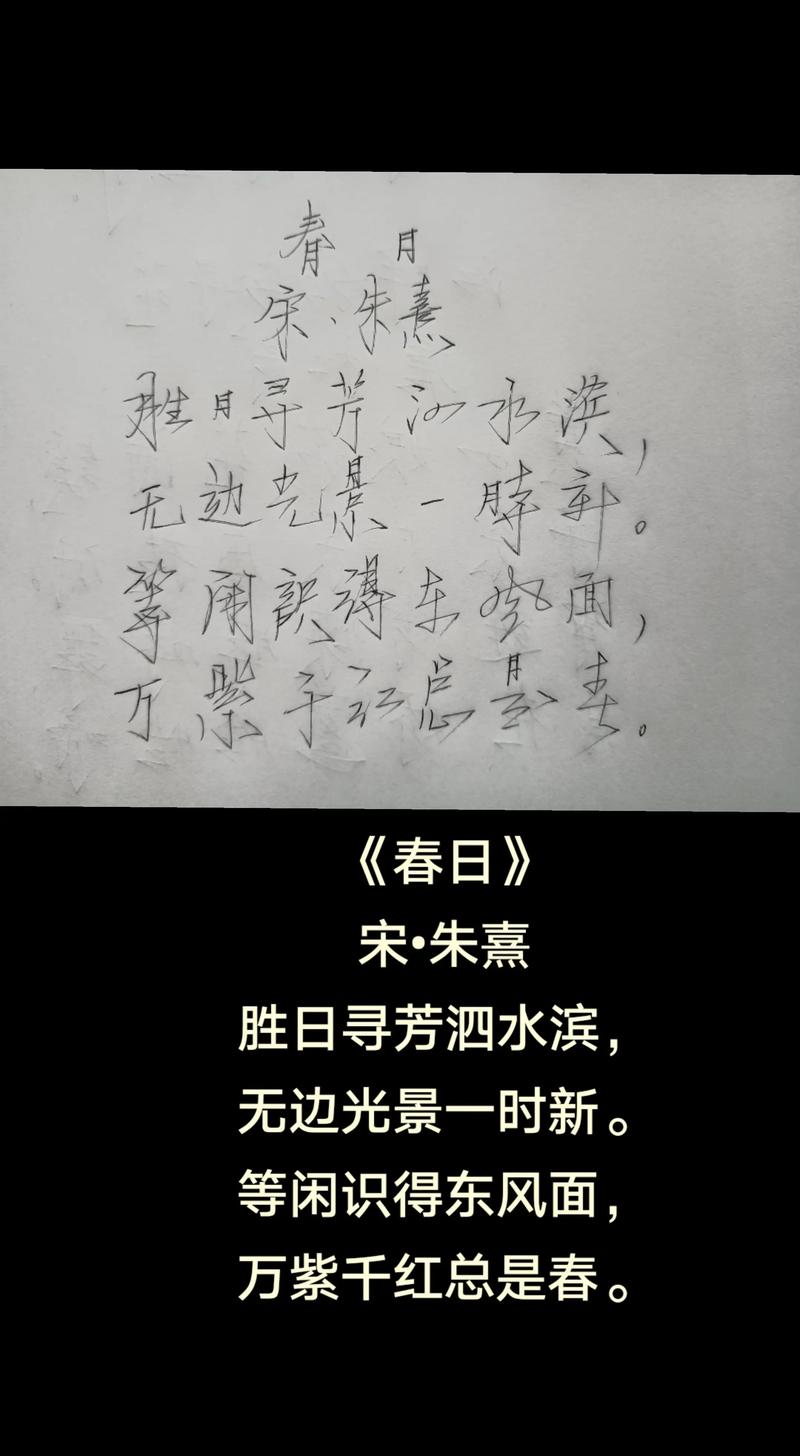 春日
宋·朱熹
胜日寻芳泗水滨，
无边光景一时新。
等闲识得东风面，
万紫千红总是春。
《春日》
宋•朱熹
胜日寻芳泗水滨，
无边光景一时新。
等闲识得东风面，
万紫千红总是春。